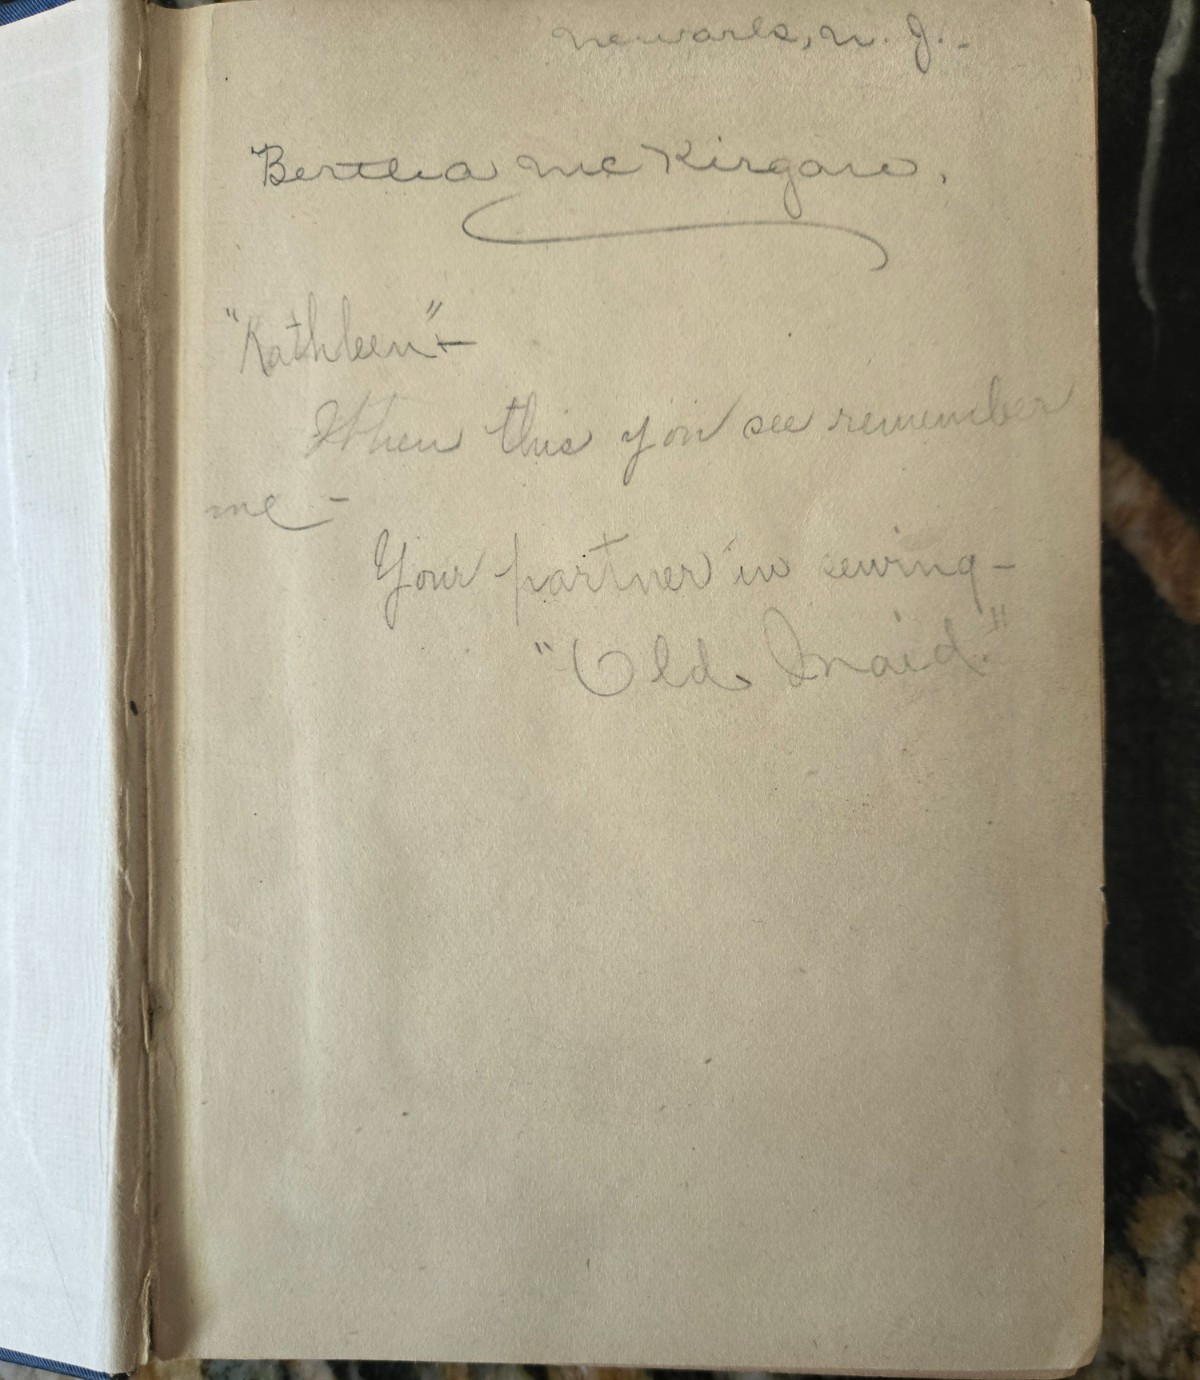 Newark, N. J.-
Bertha McKirgan.
"Kathleen"-
When this you see remember
me -
Your partner in sewing-
"Old Maid."